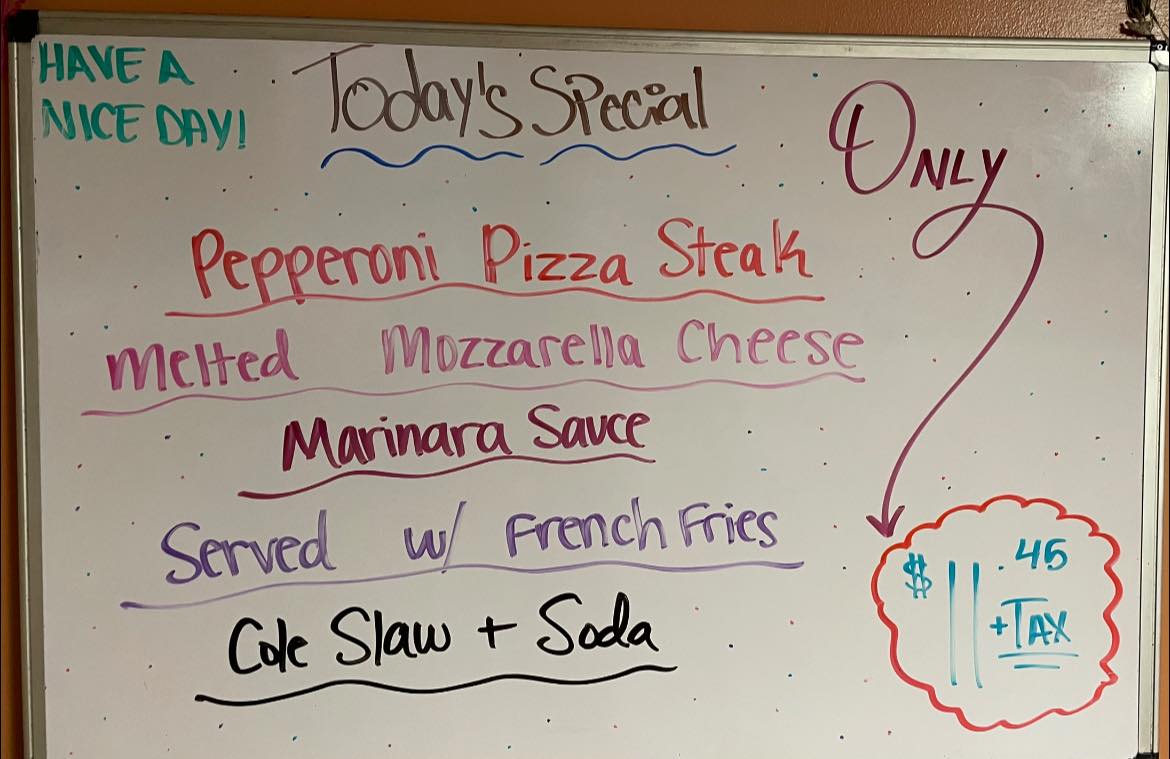 HAVE A
NICE DAY!
Today's Special
ONLY
Pepperoni Pizza Steak
Melted Mozzarella Cheese
Marinara Sauce
Served w/ French Fries
Cole Slaw + Soda
$11.45
+TAX